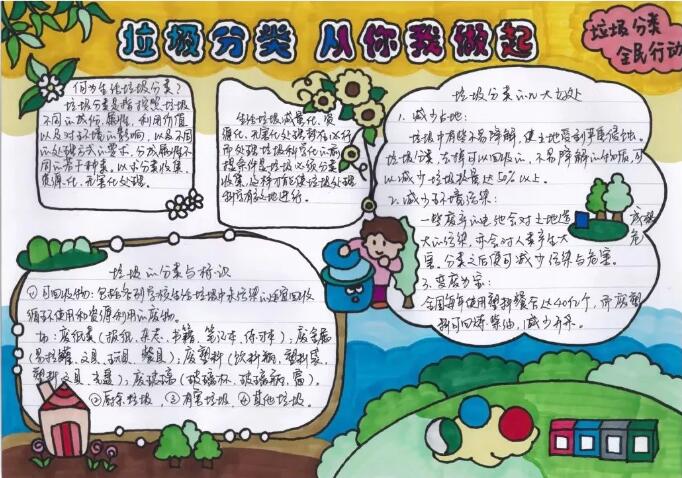 垃圾分类 从你我做起
垃圾分类
全民行动
何为生活垃圾分类?
垃圾分类是指按照垃圾
不同的成份、属性、利用价值
以及对环境的影响,以及不同
的处理方式的要求,分成属性不
同的若干种类。以求分类收集,
资源化、无害化处理。
生活垃圾减量化、资
源化、无害化处理
而处理垃圾科学化的前
提条件是垃圾必须分类
收集,这样才能使垃圾处理
垃圾分类的几大好处
1.减少占地:
垃圾中有些不易降解,使土地受到严重侵蚀。
垃圾分类,去掉可以回收的,不易降解的物质,可
以减少垃圾数量达50%以上。
2.减少环境污染:
一些废弃的电池会对土地造成极
大的污染,亦会对人类产生大危
害,分类之后便可减少污染与危害。
3.变废为宝:
全国每年使用塑料餐合达40亿个,而废塑
料可回炼柴油,减少开采。
垃圾的分类与标识
①可回收物:包括各别学校生活垃圾中未污染的适宜回收
循环使用和资源利用的废物。
如:废纸类(报纸、杂志、书籍、笔记本、练习本);废金属
(易拉罐、文具、玩具、餐具);废塑料(饮料瓶、塑料袋、
塑料文具、光盘);废玻璃(玻璃杯、玻璃瓶、窗)。
②厨余垃圾,③有害垃圾,④其他垃圾。